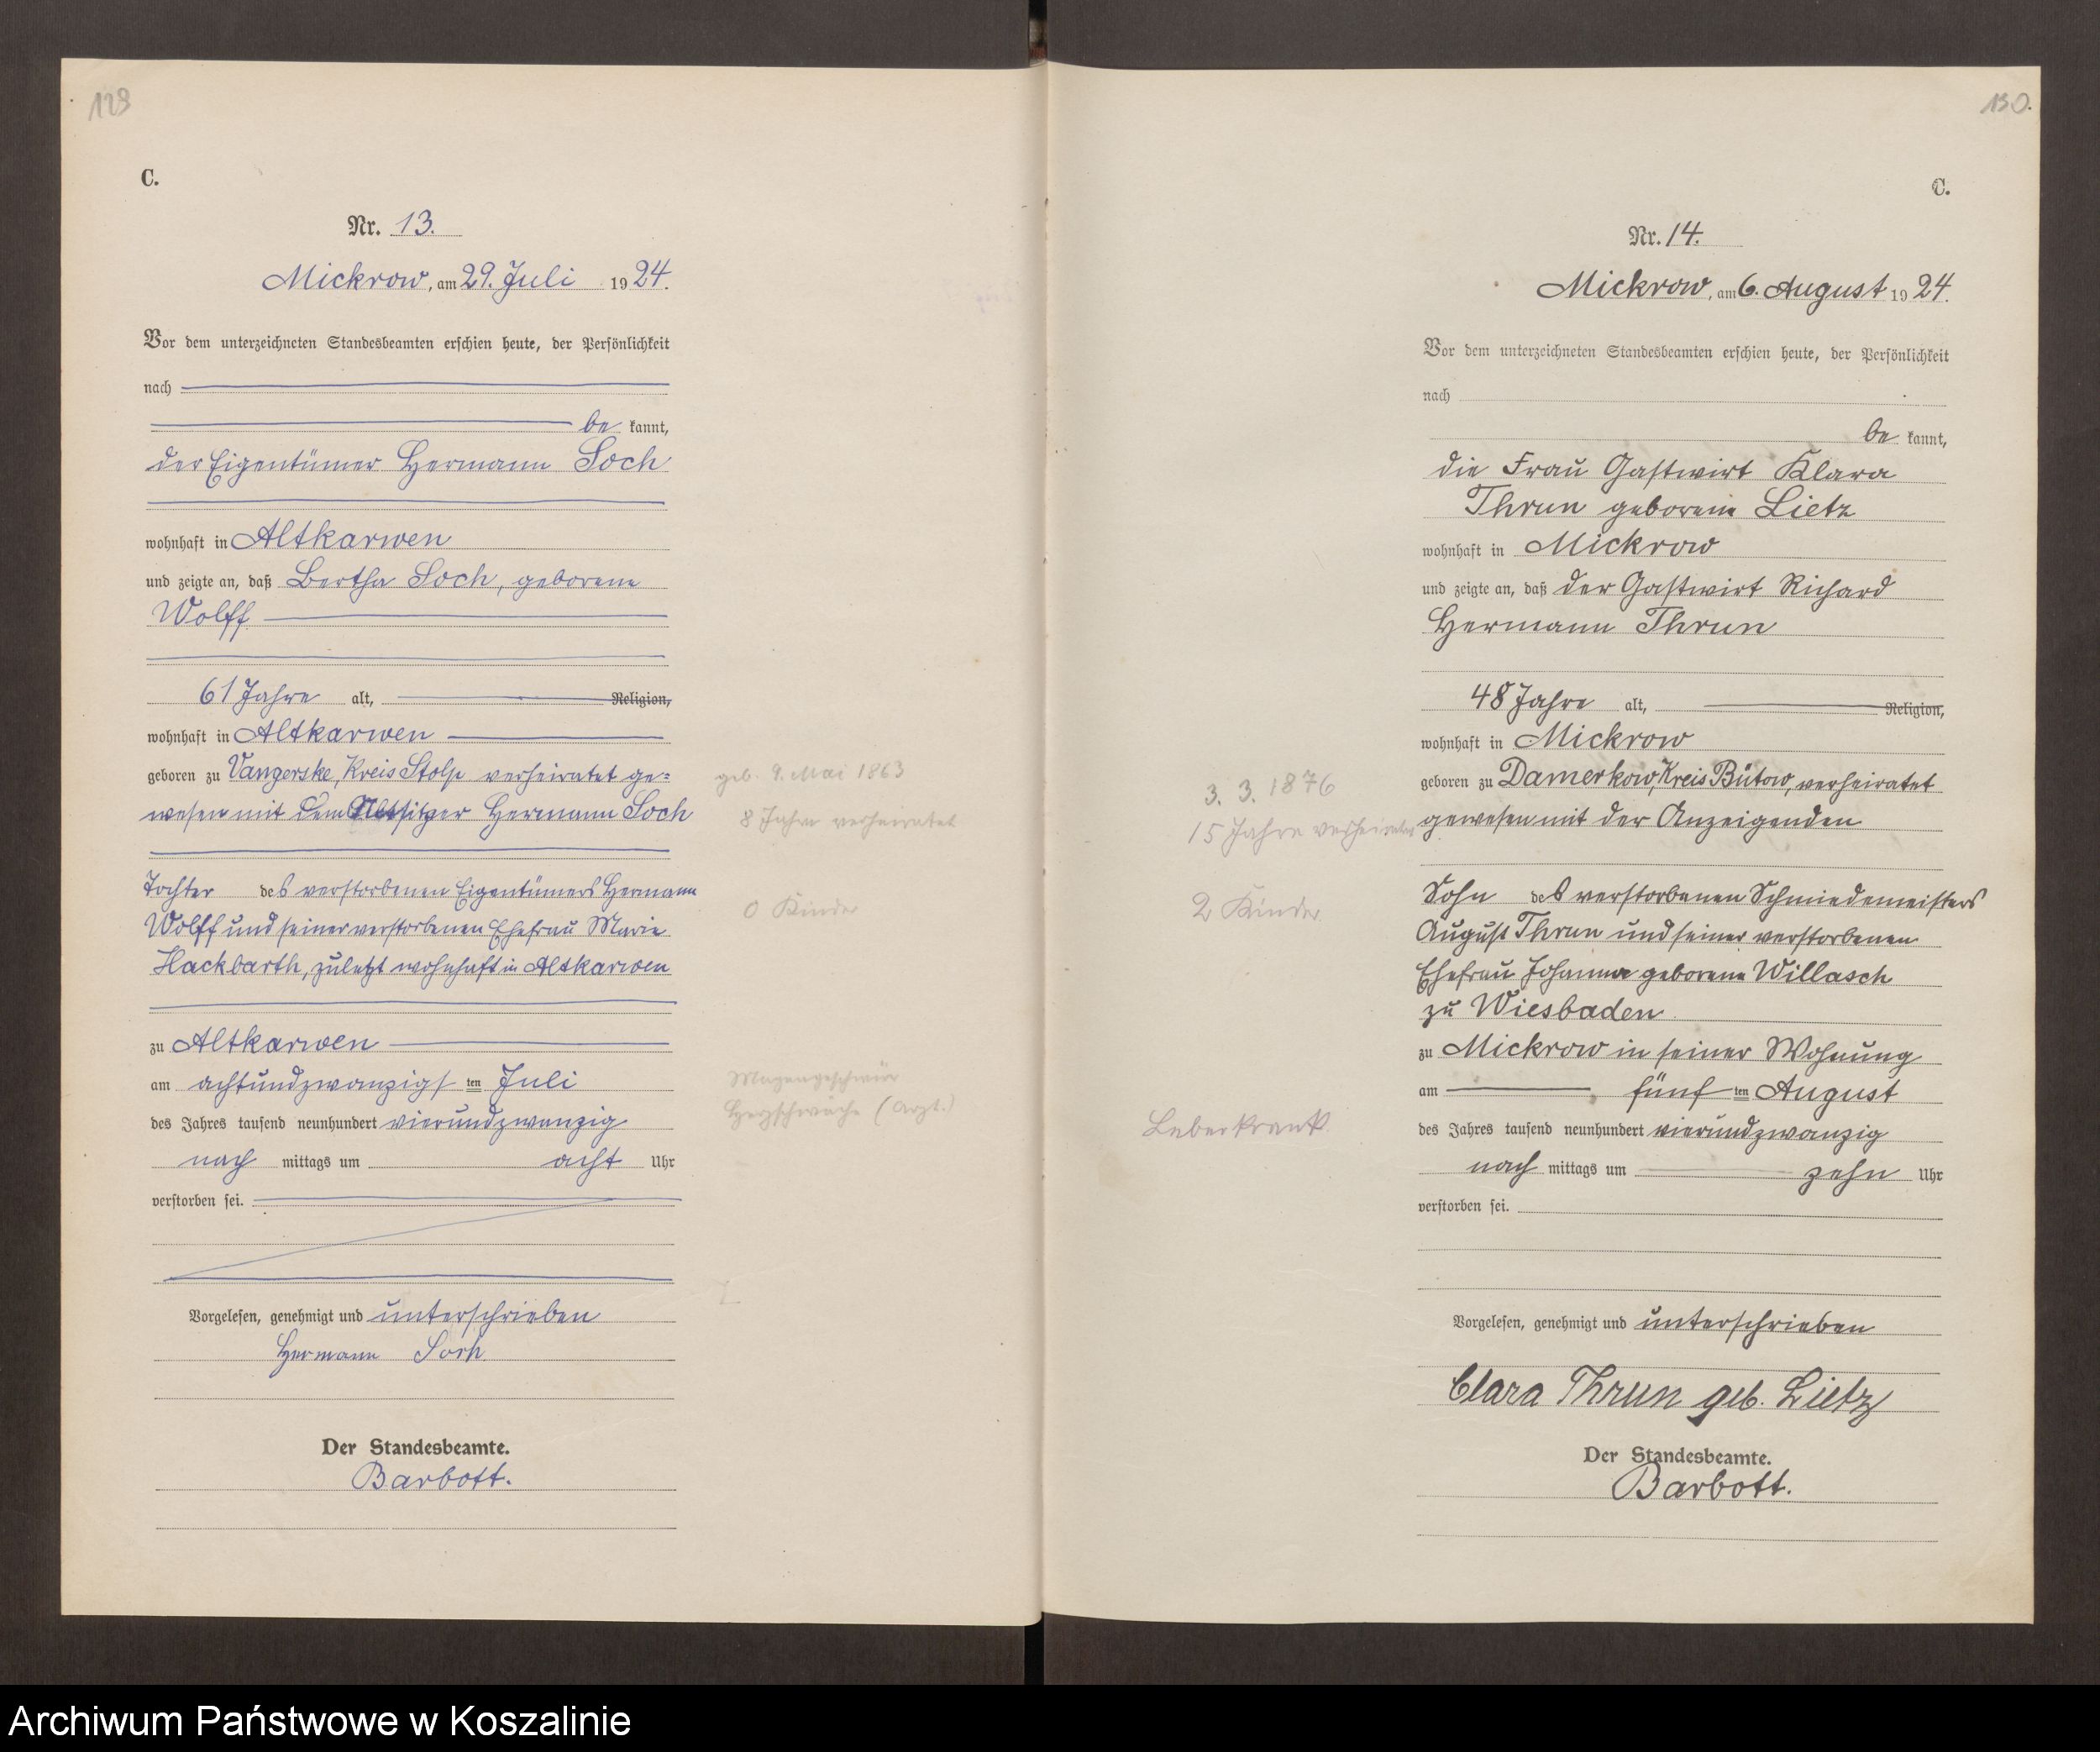 129
C.
Nr. 13.
Mickrow, am 29. Juli 1924.
Vor dem unterzeichneten Standesbeamten erschien heute, der Persönlichkeit
nach
be kannt,
der Eigentümer Hermann Soch
wohnhaft in Altkarwen
und zeigte an, daß Bertha Soch, geborene
Wolff
61 Jahre alt, Religion,
wohnhaft in Altkarwen
geboren zu Vangerske, Kreis Stolp verheiratet ge=
wesen mit dem Altsitzer Hermann Soch
Tochter des verstorbenen Eigentümers Hermann
Wolff und seiner verstorbenen Ehefrau Marie
Hackbarth, zuletzt wohnhaft in Altkarwen
zu Altkarwen
am achtundzwanzigsten Juli
des Jahres tausend neunhundert vierundzwanzig
nach mittags um acht Uhr
verstorben sei.
Vorgelesen, genehmigt und unterschrieben
Hermann Soch
Der Standesbeamte.
Barbott.
geb. 9. Mai 1863
8 Jahre verheiratet
0 Kinder
Magengeschwür
Herzschwäche (Arzt.)
130.
C.
Nr. 14.
Mickrow, am 6. August 1924.
Vor dem unterzeichneten Standesbeamten erschien heute, der Persönlichkeit
nach
be kannt,
die Frau Gastwirt Klara
Thrun geborene Lietz
wohnhaft in Mickrow
und zeigte an, daß der Gastwirt Richard
Hermann Thrun
48 Jahre alt, Religion,
wohnhaft in Mickrow
geboren zu Damerkow, Kreis Bütow, verheiratet
gewesen mit der Anzeigenden
Sohn des verstorbenen Schmiedemeisters
August Thrun und seiner verstorbenen
Ehefrau Johanna geborene Willasch
zu Wiesbaden
zu Mickrow in seiner Wohnung
am fünf ten August
des Jahres tausend neunhundert vierundzwanzig
nach mittags um zehn Uhr
verstorben sei.
Vorgelesen, genehmigt und unterschrieben
Clara Thrun geb. Lietz
Der Standesbeamte.
Barbott.
3. 3. 1876
15 Jahre verheiratet
2 Kinder
Leberkrank
Archiwum Państwowe w Koszalinie